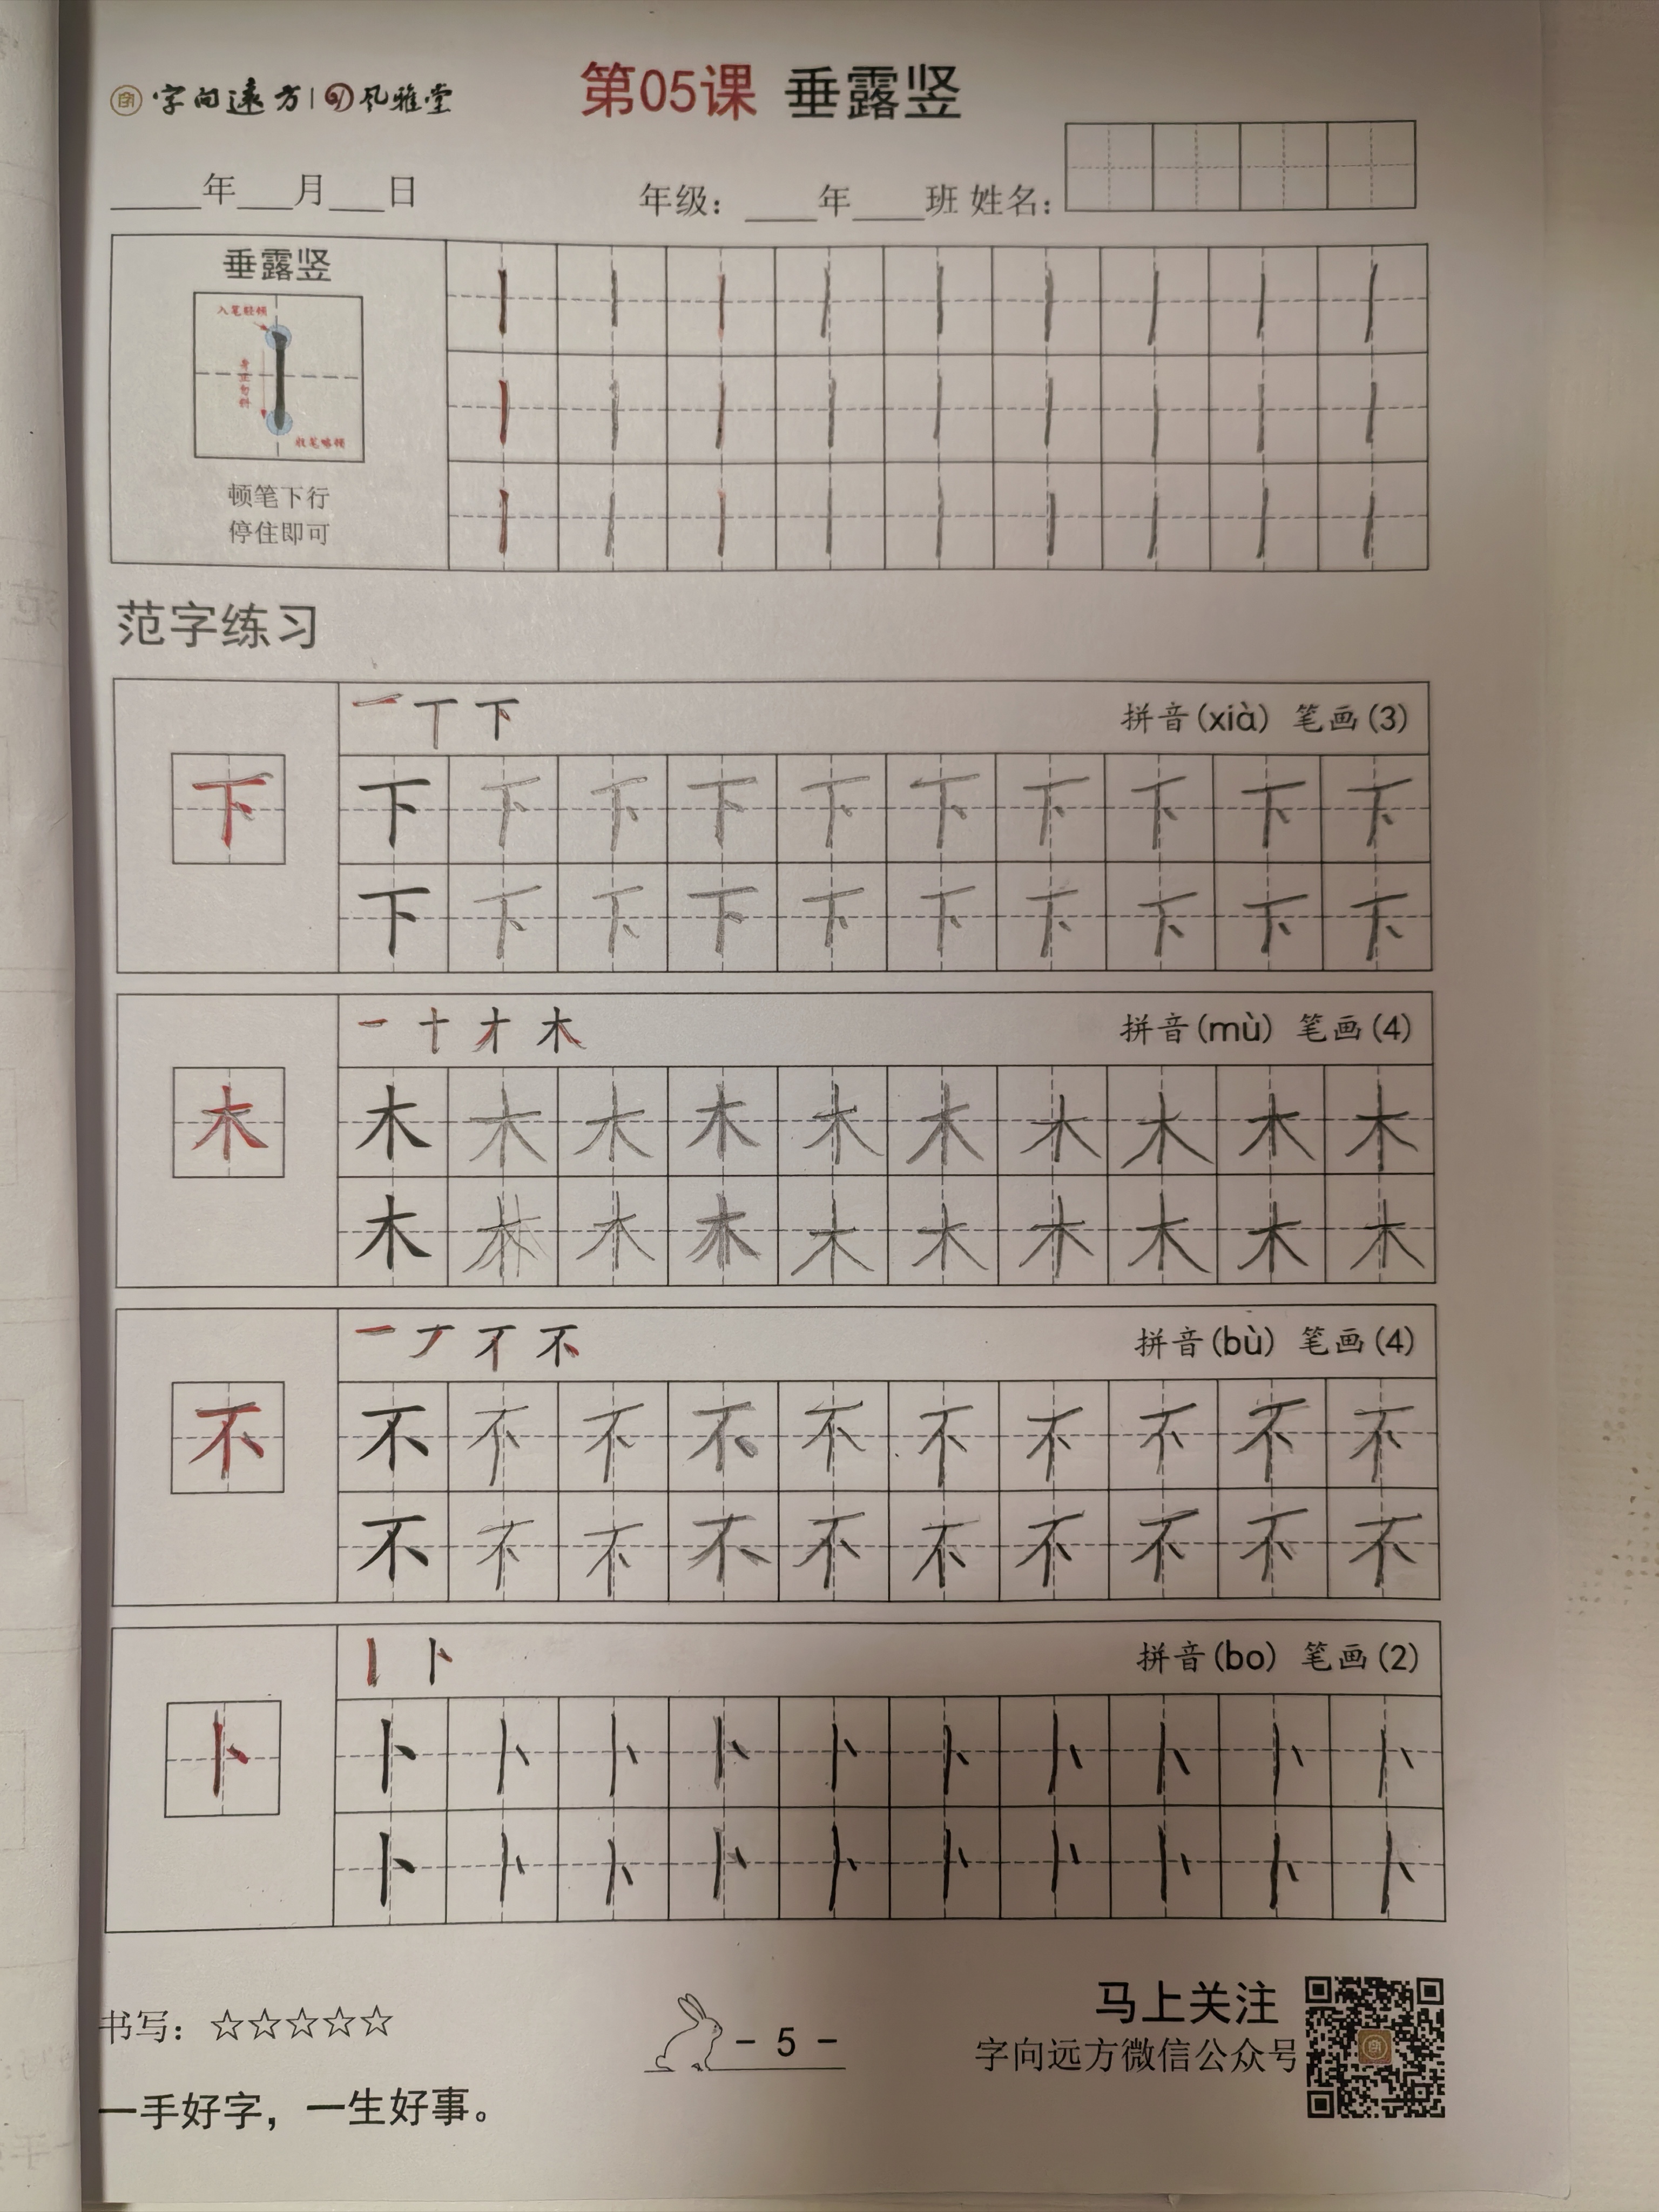 字向远方|风雅堂
第05课 垂露竖
_____年___月___日 年级：____年____班 姓名：
垂露竖
入笔轻顿
收笔略顿
顿笔下行
停住即可
范字练习
拼音(xià) 笔画(3)
下 下 下 下 下 下 下 下 下 下 下
下 下 下 下 下 下 下 下 下 下
拼音(mù) 笔画(4)
木 木 木 木 木 木 木 木 木 木 木
木 木 木 木 木 木 木 木 木 木
拼音(bù) 笔画(4)
不 不 不 不 不 不 不 不 不 不 不
不 不 不 不 不 不 不 不 不 不
拼音(bo) 笔画(2)
卜 卜 卜 卜 卜 卜 卜 卜 卜 卜 卜
卜 卜 卜 卜 卜 卜 卜 卜 卜 卜
书写：☆☆☆☆☆
一手好字，一生好事。
- 5 -
马上关注
字向远方微信公众号